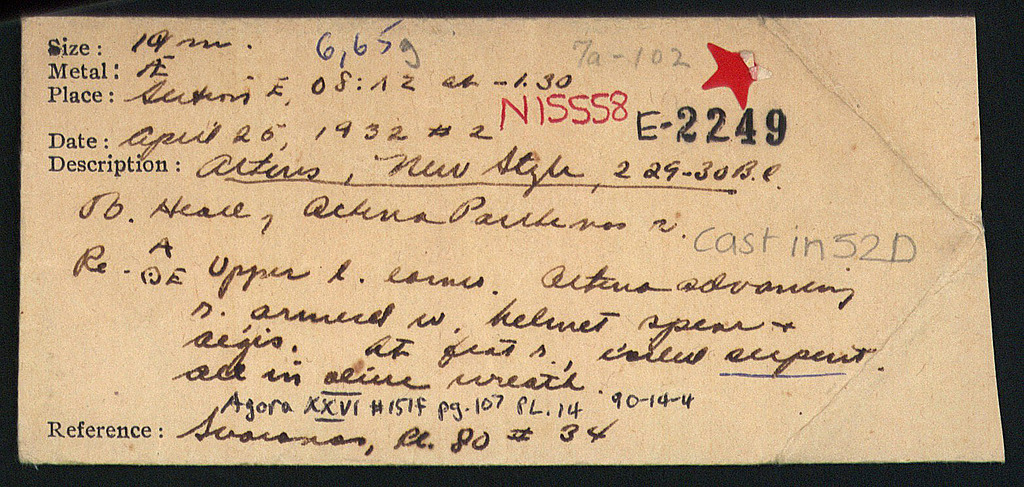 Size: 19 m. 6,65g 7a-102
Metal: Æ
Place: Section E, 08:12 at -1.30
N15558 E-2249
Date: April 25, 1932 #2
Description: Athens, New Style, 229-30 B.C.
Ob. Head of Athena Parthenos r.
cast in 52D
Re - A
ΘE Upper l. corner. Athena advancing
r. armed w. helmet spear +
aegis. At feet r., coiled serpent.
all in olive wreath.
Agora XXVI #151f pg. 107 PL. 14 90-14-4
Reference: Svoronos, Pl. 80 # 34